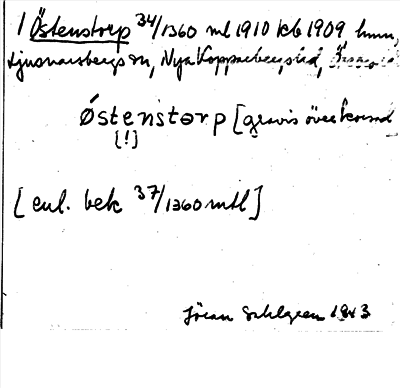 1 Östenstorp 34/1360 ml 1910 kb 1909 hmn,
Ljusnarsbergs sn, Nya Kopparbergs hd, Örebro
Östenstɘrp [gravis över korsad
[!]
[enl. bek 37/1360 mtl]
Jöran Sahlgren 1943